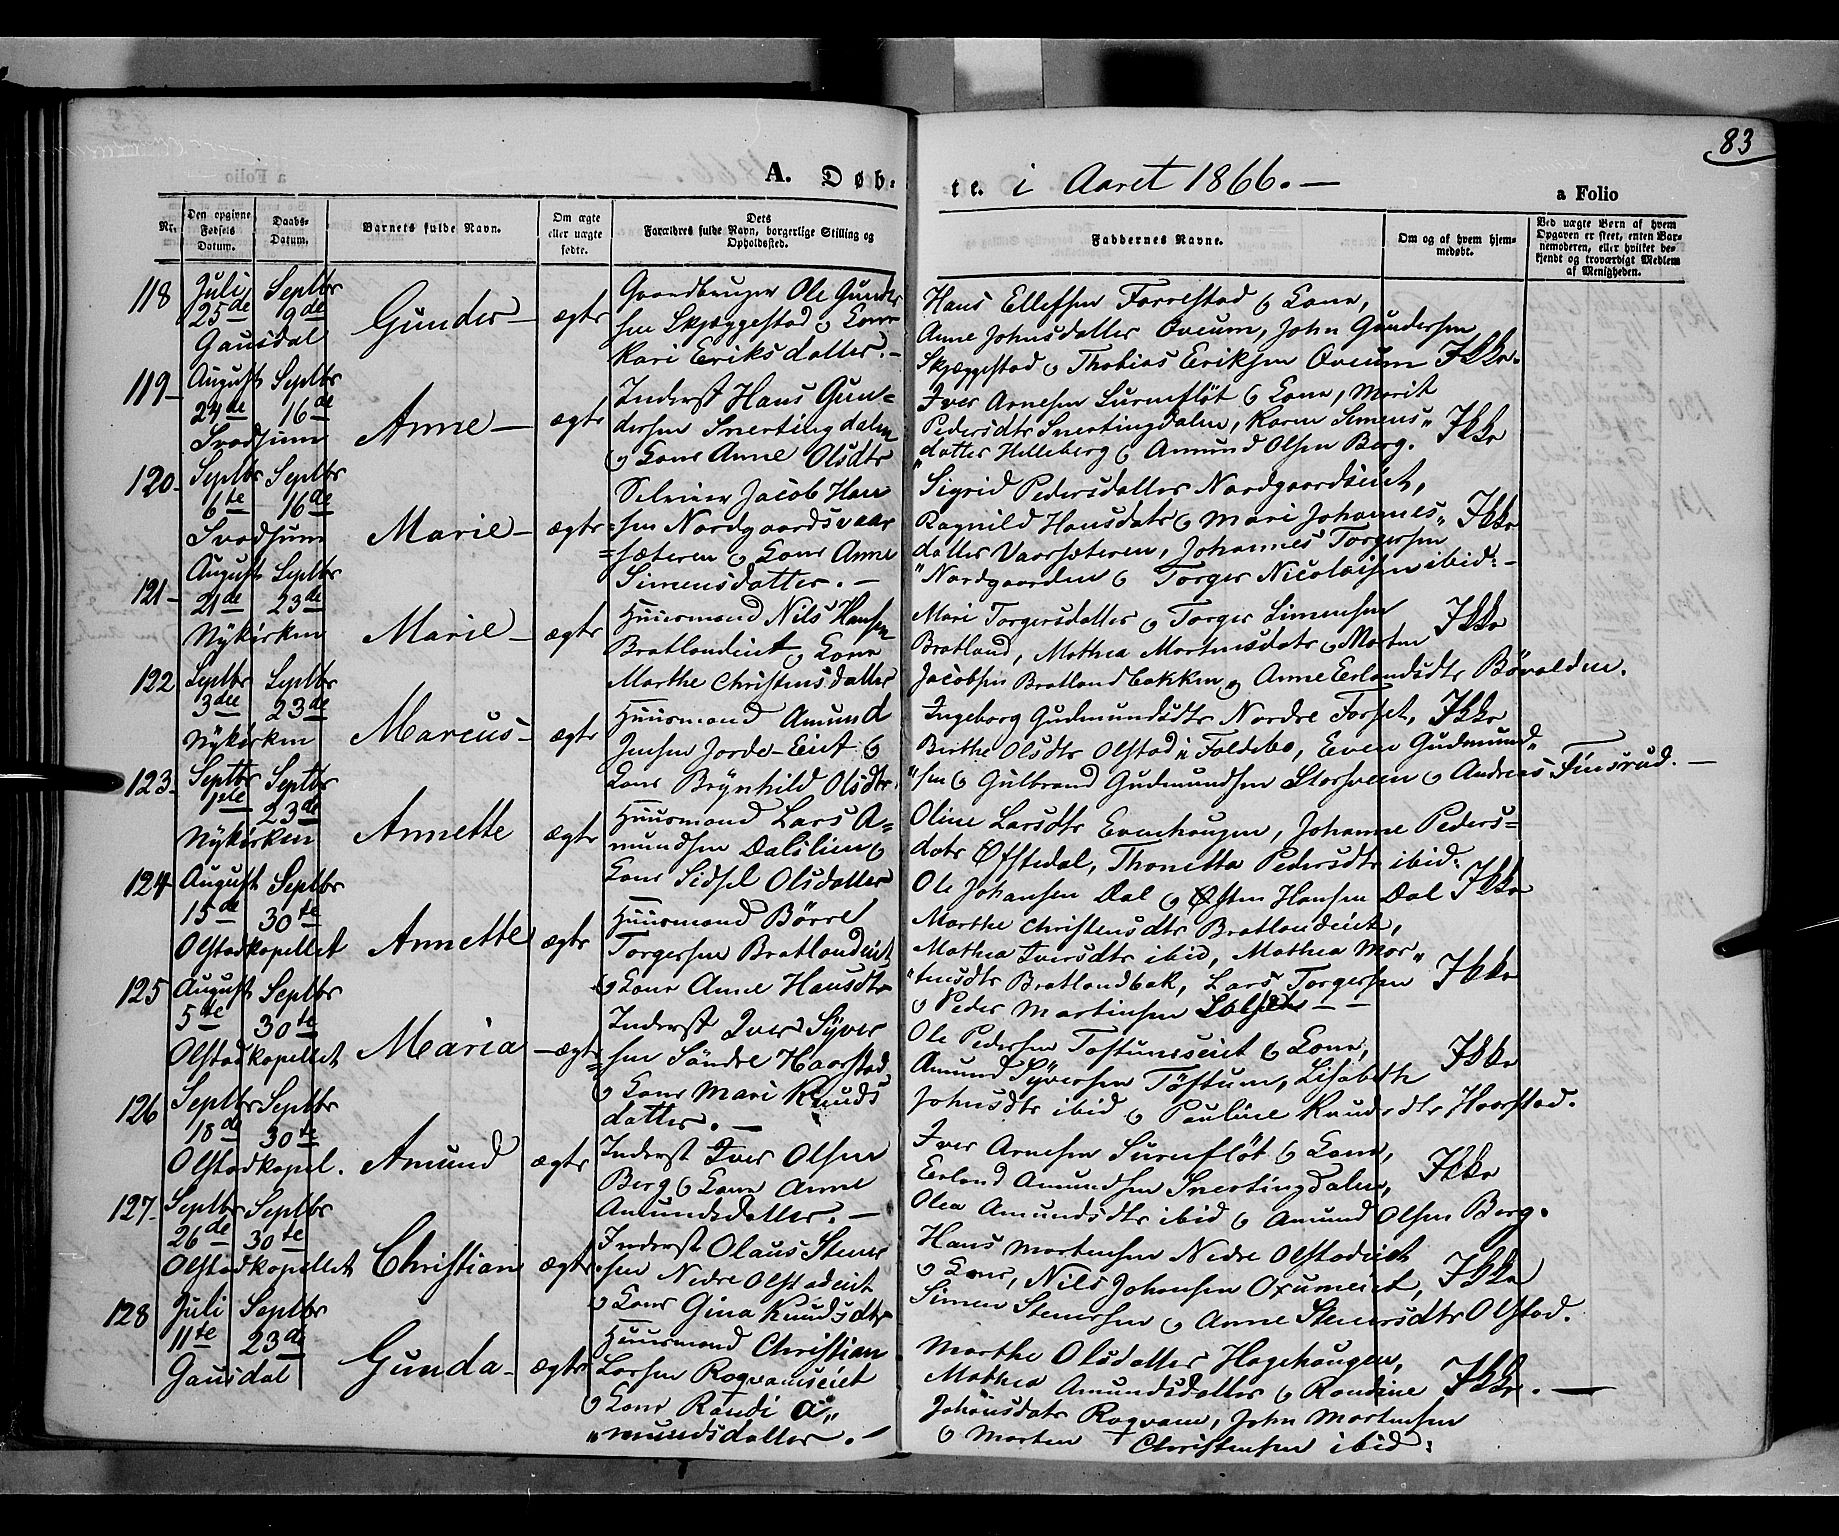 83
A. Døb-
te. i Aaret 1866. —
a Folio
Nr.
Den opgivne Fødsels Datum.
Daabs-Datum.
Barnets fulde Navn.
Om ægte eller uægte fødte.
Dets Forældres fulde Navn, borgerlige Stilling og Opholdssted.
Faddernes Navne.
Om og af hvem hjemmedøbt.
Ved uægte Børn af hvem Opgaven er skeet, enten Barnemoderen, eller hvilket bekjendt og troværdigt Medlem af Menigheden.
118
Juli 25de
Septbr 9de
Gausdal
Gunder —
ægte
Gaardbruger Ole Gunder
sen Skjæggestad og Kone
Kari Eriksdatter. —
Hans Ellefsen Forrestad og Kone,
Anne Johnsdatter Oveum, John Gundersen
Skjæggestad og Thobias Eriksen Oveum
Ikke.
119 —
August 24de
Septbr 16de
Svadsum
Anne —
ægte
Inderst Hans Gun=
dersen Snertingdalen
og Kone Anne Olsdtr
Iver Arnesen Surenflöt og Kone, Marit
Pedersdtr Snertingdalen, Karen Simens"
datter Helleberg og Amund Olsen Berg.
Ikke
120 —
Septbr 6te
Septbr 16de
Svadsum
Marie —
ægte
Selveier Jacob Han
=sen Nordgaardsvaar
=sæteren og Kone Anne
Simensdatter. —
Sigrid Pedersdatter Nordgaardseiet,
Ragnild Hansdatr og Mari Johannes"
datter Vaarsæteren, Johannes Torgersen
"Nordgaarden og Torger Nicolaisen ibid: —
Ikke
121 —
August 21de
Septbr 23de
Nykirken
Marie —
ægte
Huusmand Nils Hansen
Bratlandeiet og Kone
Marthe Christensdatter
Mari Torgersdatter og Torger Simensen
Bratland, Mathea Mortensdatr og Morten
Jacobsen Bratlandbakken og Anne Erlandsdtr Bövalden.
Ikke
122
Septbr 3die
Septbr 23de
Nykirken
Marcus —
ægte
Huusmand Amund
Jensen Jorde-Eiet og
Kone Brynhild Olsdtr.
Ingeborg Gudmundsdtr Nordre Forset,
Birthe Olsdtr Olstad i Foldebo, Even Gudmund"
"sen og Gulbrand Gudmundsen Storsveen og Andreas Finsrud. —
Ikke
123 —
Septbr 1ste
Septbr 23de
Nykirken
Annette
ægte
Huusmand Lars A=
mundsen Dalslien og
Kone Sidsel Olsdatter
Oline Larsdtr Evenhaugen, Johanne Peders=
datr Öfstedal, Thonetta Pedersdtr ibid:
Ole Johansen Dal og Østen Hansen Dal
Ikke
124
August 15de
Septbr 30te
Olstadkapellet
Annette
ægte
Huusmand Börre
Torgersen Bratlandeiet
og Kone Anne Hansdtr
Marthe Christensdtr Bratlandeiet,
Mathea Iversdtr ibid, Mathea Mor"
"tensdtr Bratlandbak, Lars Torgersen
og Peder Martinsen — —
Ikke
125
August 5te
Septbr 30te
Olstadkapellet
Maria —
ægte
Inderst Iver Syver
=sen Söndre Haarstad
og Kone Mari Knuds
datter. —
Ole Pedersen Toftumseiet og Kone,
Amund Syversen Töftum, Lisabeth
Johnsdtr ibid og Pauline Knudsdtr Haarstad.
Ikke
126
Septbr 18de
Septbr 30te
Olstadkapel.
Amund
ægte
Inderst Iver Olsen
Berg og Kone Anne
Amundsdatter. —
Iver Arnesen Surenflöt og Kone,
Erland Amundsen Snertingdalen,
Olea Amundsdtr ibid og Amund Olsen Berg.
Ikke
127 —
Septbr 26de
Septbr 30te
Olstadkapellet
Christian
ægte
Inderst Olaus Stener
sen Nedre Olstadeiet
og Kone Gina Knudsdtr
Hans Mortensen Nedre Olstadeiet
og Kone, Nils Johansen Oxumeiet,
Simen Stenersen og Anne Stenersdtr Olstad.
Ikke
128
Juli 11te
Septbr 23de
Gausdal
Gunda —
ægte
Huusmand Christian
Larsen Roqvameiet
og Kone Randi A"
"mundsdatter. —
Marthe Olsdatter Hagehaugen,
Mathea Amundsdatter og Randine
Johansdatr Roqvam, John Mortensen
og Morten Christensen ibid:
Ikke. —